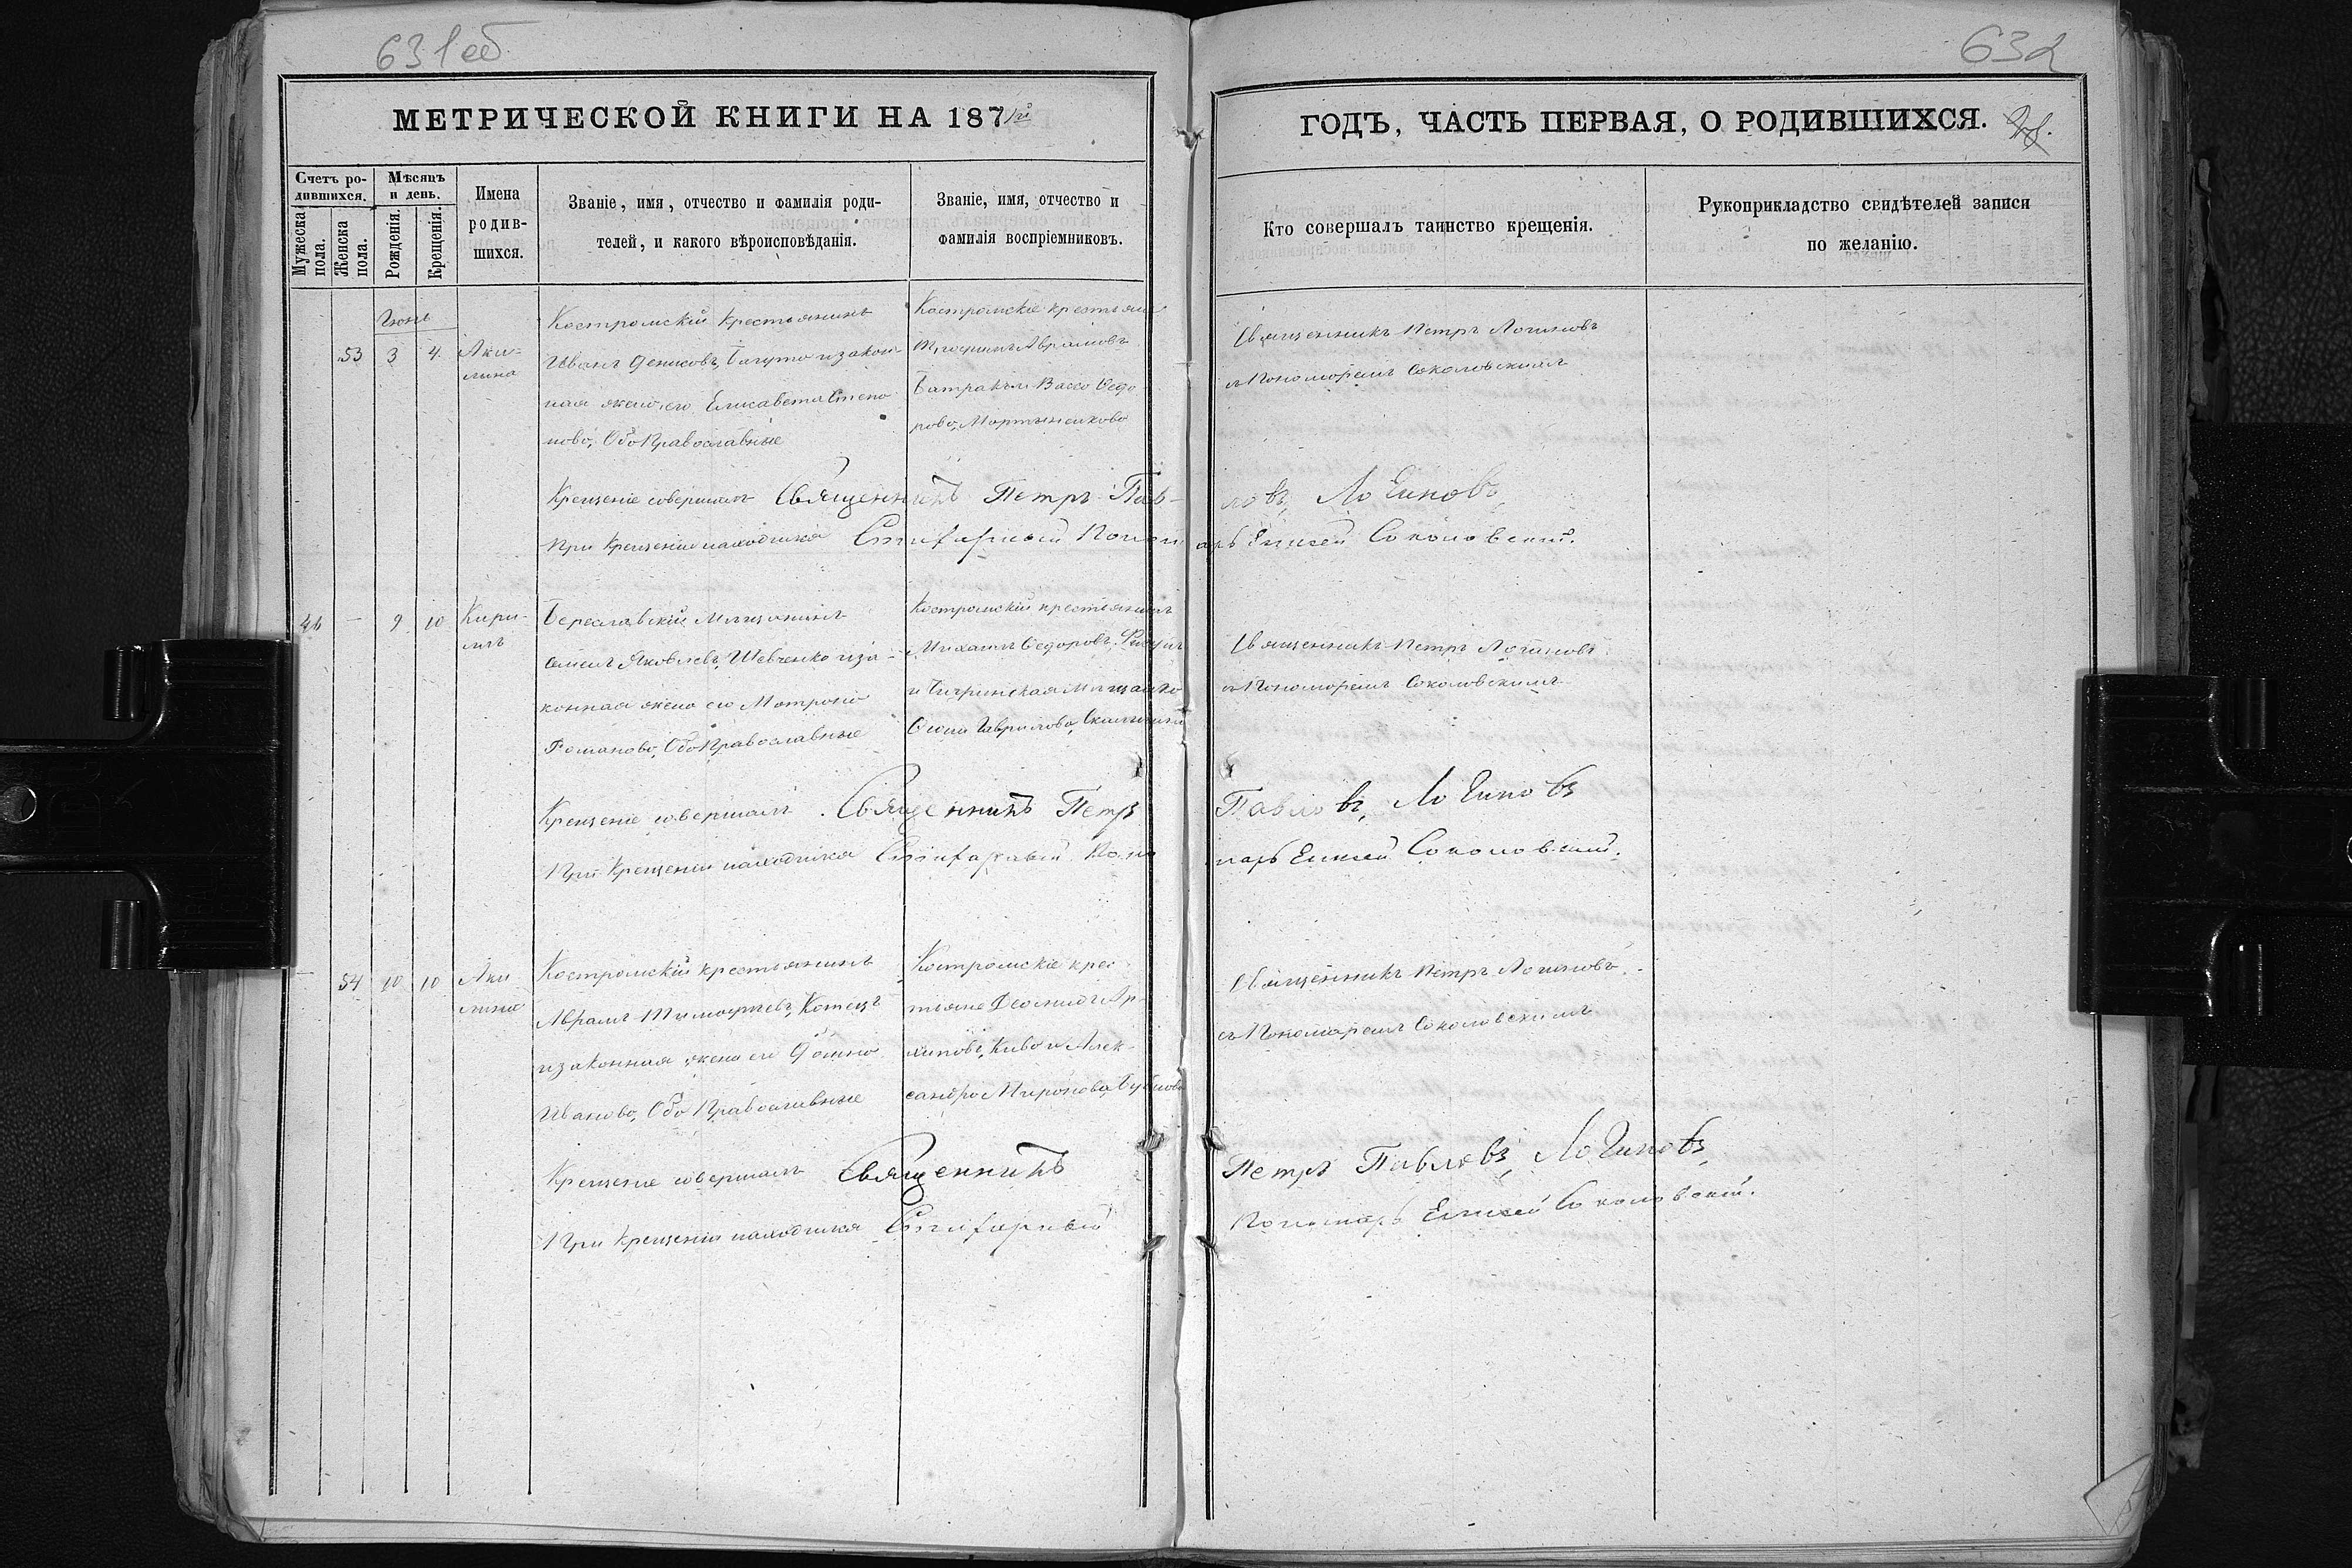 631об
632
МЕТРИЧЕСКОЙ КНИГИ НА 1871й
ГОДЪ, ЧАСТЬ ПЕРВАЯ, О РОДИВШИХСЯ.
Счетъ ро-
дившихся.
Мужеска
пола.
Женска
пола.
Мѣсяцъ
и день.
Рожденія.
Крещенія.
Имена
родив-
шихся.
Званіе, имя, отчество и фамилія роди-
телей, и какого вѣроисповѣданія.
Званіе, имя, отчество и
фамилія воспріемниковъ.
Кто совершалъ таинство крещенія.
Рукоприкладство свидѣтелей записи
по желанію.
Іюнь
53 3 4 Аки-
лина
Костромскій крестьянинъ
Иванъ Денисовъ, и закон-
ная жена его Елисавета Степа-
нова, Оба Православные
Костромскіе крестьяне
Трофимъ Аврамовъ
и Васса Ѳедо
рова, Мартыненкова
Священникъ Петръ Логиновъ
съ Пономаремъ Соколовскимъ
Крещеніе совершалъ Священникъ Петръ Пав-
ловъ, Логиновъ,
при Крещеніи находился Стихарный Поном
арь Елисей Соколовскій.
46 — 9 10 Кири-
лъ
Бериславскій Мѣщанинъ
Семенъ Яковлевъ, Шевченко и за-
конная жена его Матрона
Романова, Оба Православные
Костромскій крестьянинъ
Михаилъ Ѳедоровъ,
и мѣщанка
Гаврилова,
Священникъ Петръ Логиновъ
съ Пономаремъ Соколовскимъ
Крещеніе совершалъ Священникъ Петръ
Павловъ, Логиновъ
При Крещеніи находился Стихарный Поно
марь Елисей Соколовскій.
— 54 10 10 Аки
лина
Костромскій крестьянинъ
Аврамъ Тимофѣевъ, Котецъ
и законная жена его Домна
Иванова, Оба Православные
Костромскіе крес
тьяне Леонидъ Ар-
хиповъ, и Алек-
сандра Миронова,
Священникъ Петръ Логиновъ
съ Пономаремъ Соколовскимъ
Крещеніе совершалъ Священникъ
Петръ Павловъ, Логиновъ,
При Крещеніи находился Стихарный
Пономарь Елисей Соколовскій.